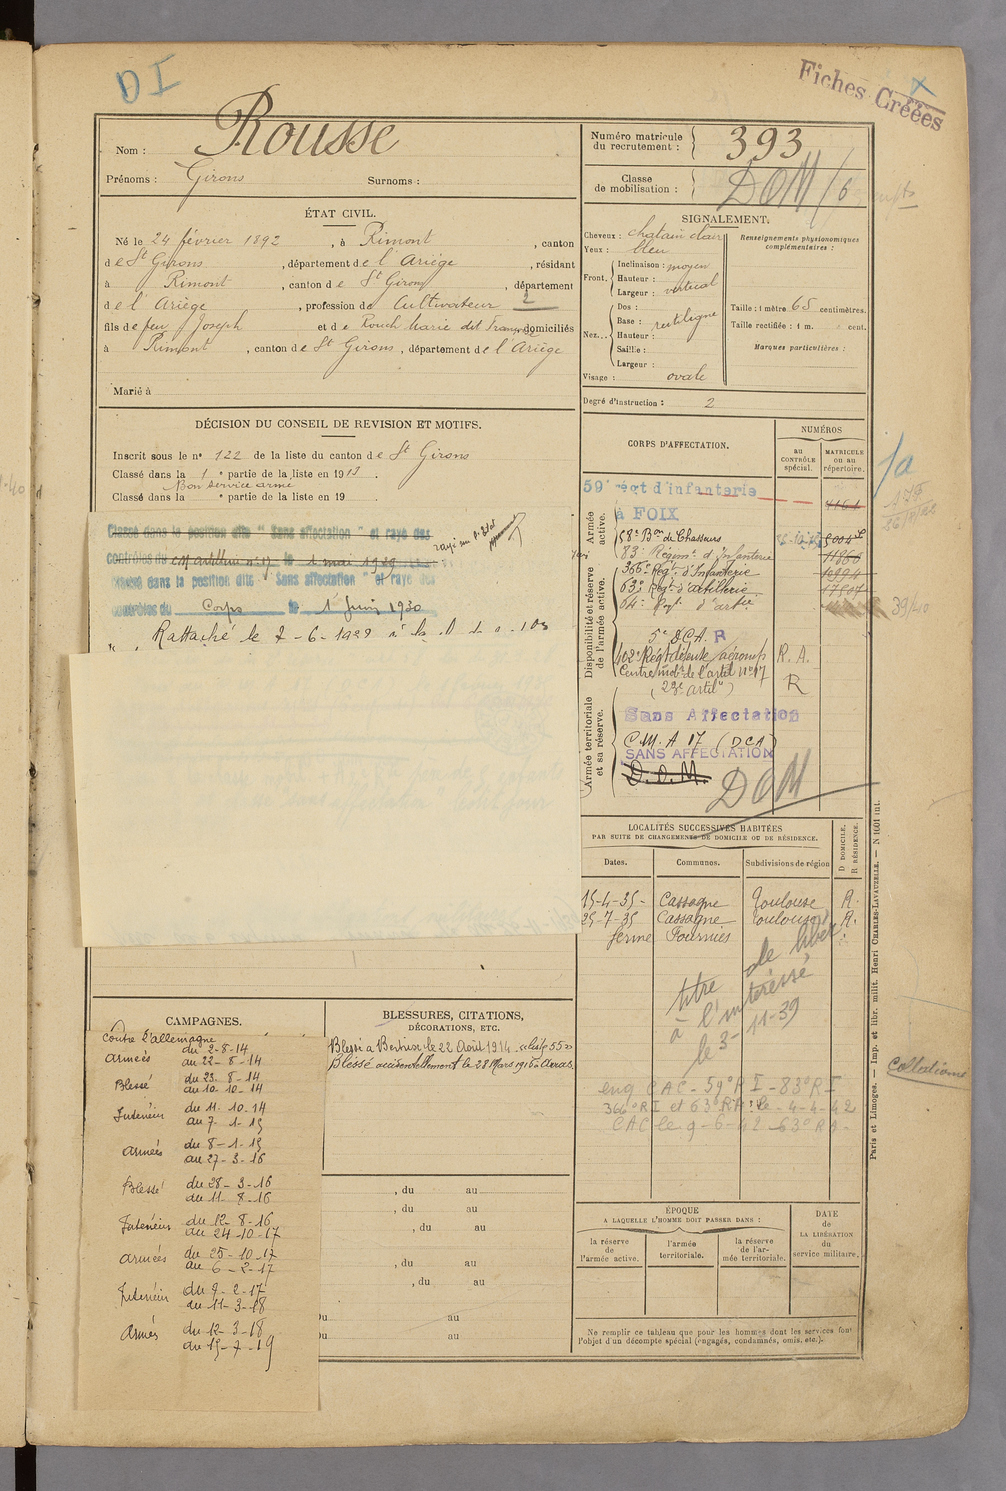 DI
Fiches Créées
Nom : Rousse
Prénoms : Girons Surnoms :
Numéro matricule du recrutement : 393
Classe de mobilisation : DOM/6
ÉTAT CIVIL.
Né le 24 février 1892, à Rimont, canton
de St Girons, département de l'Ariège, résidant
à Rimont, canton de St Girons, département
de l'Ariège, profession de Cultivateur 2
fils de feu Joseph et de Rouch Marie dit domiciliés
à Rimont, canton de St Girons, département de l'Ariège
Marié à
SIGNALEMENT.
Cheveux : chatain clair
Yeux : bleu
Front. Inclinaison : moyen
Hauteur :
Largeur : vertical
Nez... Dos :
Base : rectiligne
Hauteur :
Saillie :
Largeur :
Visage : ovale
Renseignements physionomiques
complémentaires :
Taille : 1 mètre 65 centimètres.
Taille rectifiée : 1 m. cent.
Marques particulières :
Degré d'instruction : 2
DÉCISION DU CONSEIL DE REVISION ET MOTIFS.
Inscrit sous le n° 122 de la liste du canton de St Girons
Classé dans la 1e partie de la liste en 1913.
Bon service armé
Classé dans la e partie de la liste en 19
Classé dans la position dite "Sans affectation" et rayé des
contrôles du le 1 mai 1929
classé dans la position dite "Sans affectation" et rayé des
contrôles du Corps le 1 Juin 1930
Rattaché le 7-6-1928 à la
CORPS D'AFFECTATION.
NUMÉROS
au CONTRÔLE spécial.
MATRICULE ou au répertoire.
Armée active.
59e régt d'infanterie
à FOIX
58e Bon de Chasseurs
83e Régimt d'Infanterie
Disponibilité et réserve de l'armée active.
366e Régt d'Infanterie
63e Régt d'artillerie
64e Régt d'artie
5e DCA. R
402e Régt défense aérienne R. A.
Centre mobe de l'artie n°17 R
(23e artie)
Armée territoriale et sa réserve.
Sans Affectation
C.M.A 17 (DCA)
SANS AFFECTATION
D.O.M. DOM
39/40
LOCALITÉS SUCCESSIVES HABITÉES
PAR SUITE DE CHANGEMENTS DE DOMICILE OU DE RÉSIDENCE.
Dates. Communes. Subdivisions de région D. DOMICILE. R. RÉSIDENCE.
15-4-35 - Cassagne Toulouse R.
25-7-35 Cassagne Toulouse R.
ferme Fournies
titre de libér
à l'intéressé
le 3-11-39
eng CAC - 59e RI - 83e RI
366e RI et 63e RA le - 4-4-42
CAC le 9-6-42 63e RA -
Collationné
CAMPAGNES.
Contre l'allemagne
Armées du 2-8-14
au 22-8-14
Blessé du 23-8-14
au 10-10-14
Intérieur du 11-10-14
au 7-1-15
Armées du 8-1-15
au 27-3-16
Blessé du 28-3-16
au 11-8-16
Intérieur du 12-8-16
au 24-10-17
Armées du 25-10-17
au 6-2-17
Intérieur du 7-2-17
au 11-3-18
Armés du 12-3-18
au 15-7-19
BLESSURES, CITATIONS,
DÉCORATIONS, ETC.
Blessé à Bertrix le 22 Août 1914 "liste 55"
Blessé accidentellement le 28 Mars 1916 - Arras
, du au
, du au
, du au
, du au
, du au
Du au
Du au
ÉPOQUE
A LAQUELLE L'HOMME DOIT PASSER DANS :
la réserve de l'armée active.
l'armée territoriale.
la réserve de l'armée territoriale.
DATE de LA LIBÉRATION du service militaire.
Ne remplir ce tableau que pour les hommes dont les services font
l'objet d'un décompte spécial (engagés, condamnés, omis, etc.).
Paris et Limoges. — Imp. et libr. milit. Henri CHARLES-LAVAUZELLE. — N 1001 int.